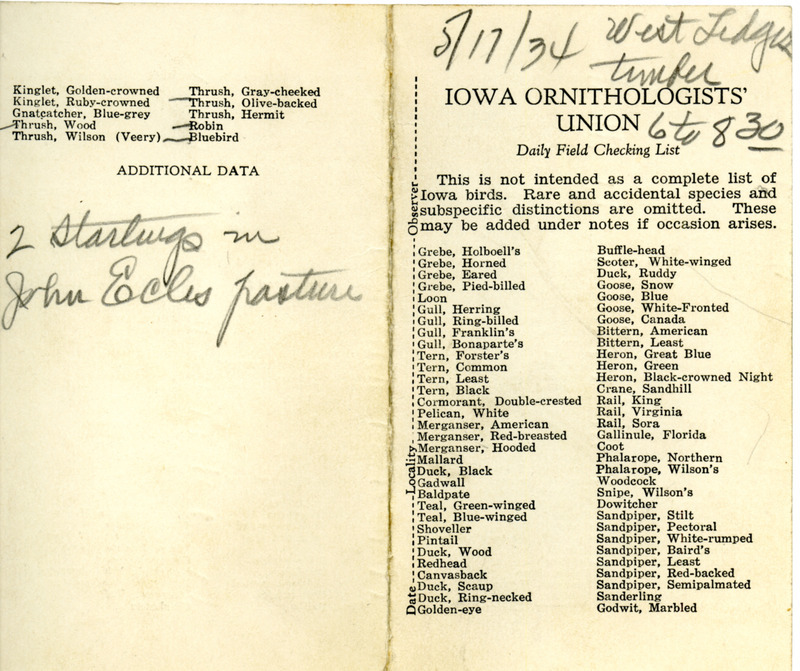 Kinglet, Golden-crowned
Kinglet, Ruby-crowned
Gnatcatcher, Blue-grey
Thrush, Wood
Thrush, Wilson (Veery)
Thrush, Gray-cheeked
Thrush, Olive-backed
Thrush, Hermit
Robin
Bluebird
ADDITIONAL DATA
2 Starlings in
John Ecles pasture
5/17/34 West Ledges
timber
IOWA ORNITHOLOGISTS'
UNION 6 to 8 30
Daily Field Checking List
This is not intended as a complete list of
Iowa birds. Rare and accidental species and
subspecific distinctions are omitted. These
may be added under notes if occasion arises.
Date Locality Observer
Grebe, Holboell's
Grebe, Horned
Grebe, Eared
Grebe, Pied-billed
Loon
Gull, Herring
Gull, Ring-billed
Gull, Franklin's
Gull, Bonaparte's
Tern, Forster's
Tern, Common
Tern, Least
Tern, Black
Cormorant, Double-crested
Pelican, White
Merganser, American
Merganser, Red-breasted
Merganser, Hooded
Mallard
Duck, Black
Gadwall
Baldpate
Teal, Green-winged
Teal, Blue-winged
Shoveller
Pintail
Duck, Wood
Redhead
Canvasback
Duck, Scaup
Duck, Ring-necked
Golden-eye
Buffle-head
Scoter, White-winged
Duck, Ruddy
Goose, Snow
Goose, Blue
Goose, White-Fronted
Goose, Canada
Bittern, American
Bittern, Least
Heron, Great Blue
Heron, Green
Heron, Black-crowned Night
Crane, Sandhill
Rail, King
Rail, Virginia
Rail, Sora
Gallinule, Florida
Coot
Phalarope, Northern
Phalarope, Wilson's
Woodcock
Snipe, Wilson's
Dowitcher
Sandpiper, Stilt
Sandpiper, Pectoral
Sandpiper, White-rumped
Sandpiper, Baird's
Sandpiper, Least
Sandpiper, Red-backed
Sandpiper, Semipalmated
Sanderling
Godwit, Marbled